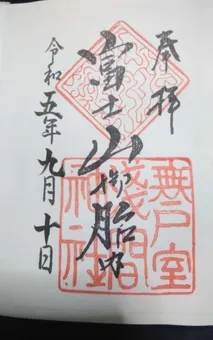 奉拝
富士山御胎内
無戸室
浅間
神社
令和五年九月十日